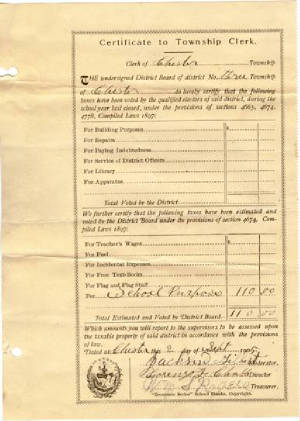 Certificate to Township Clerk.
Clerk of Chester Township
THE undersigned District Board of district No. Township
of Chester do hereby certify that the following
taxes have been voted by the qualified electors of said district, during the
school year last closed, under the provisions of sections 4665, 4674,
4778, Compiled Laws 1897:
For Building Purposes
For Repairs
For Paying Indebtedness
For Service of District Officers
For Library
For Apparatus
Total Voted by the District
We further certify that the following taxes have been estimated and
voted by the District Board under the provisions of section 4674, Compiled Laws 1897:
For Teacher's Wages
For Fuel
For Incidental Expenses
For Free Text-Books
For Flag and Flag Staff
For School Purposes 110 00
Total Estimated and Voted by District Board 110 00
Which amounts you will report to the supervisors to be assessed upon
the taxable property of said district in accordance with the provisions
of law.
Dated at Chester 2 day of Sept 1905
Director.
Lorenzo
Wm S Rogers Treasurer.
School Blanks, Copyright.